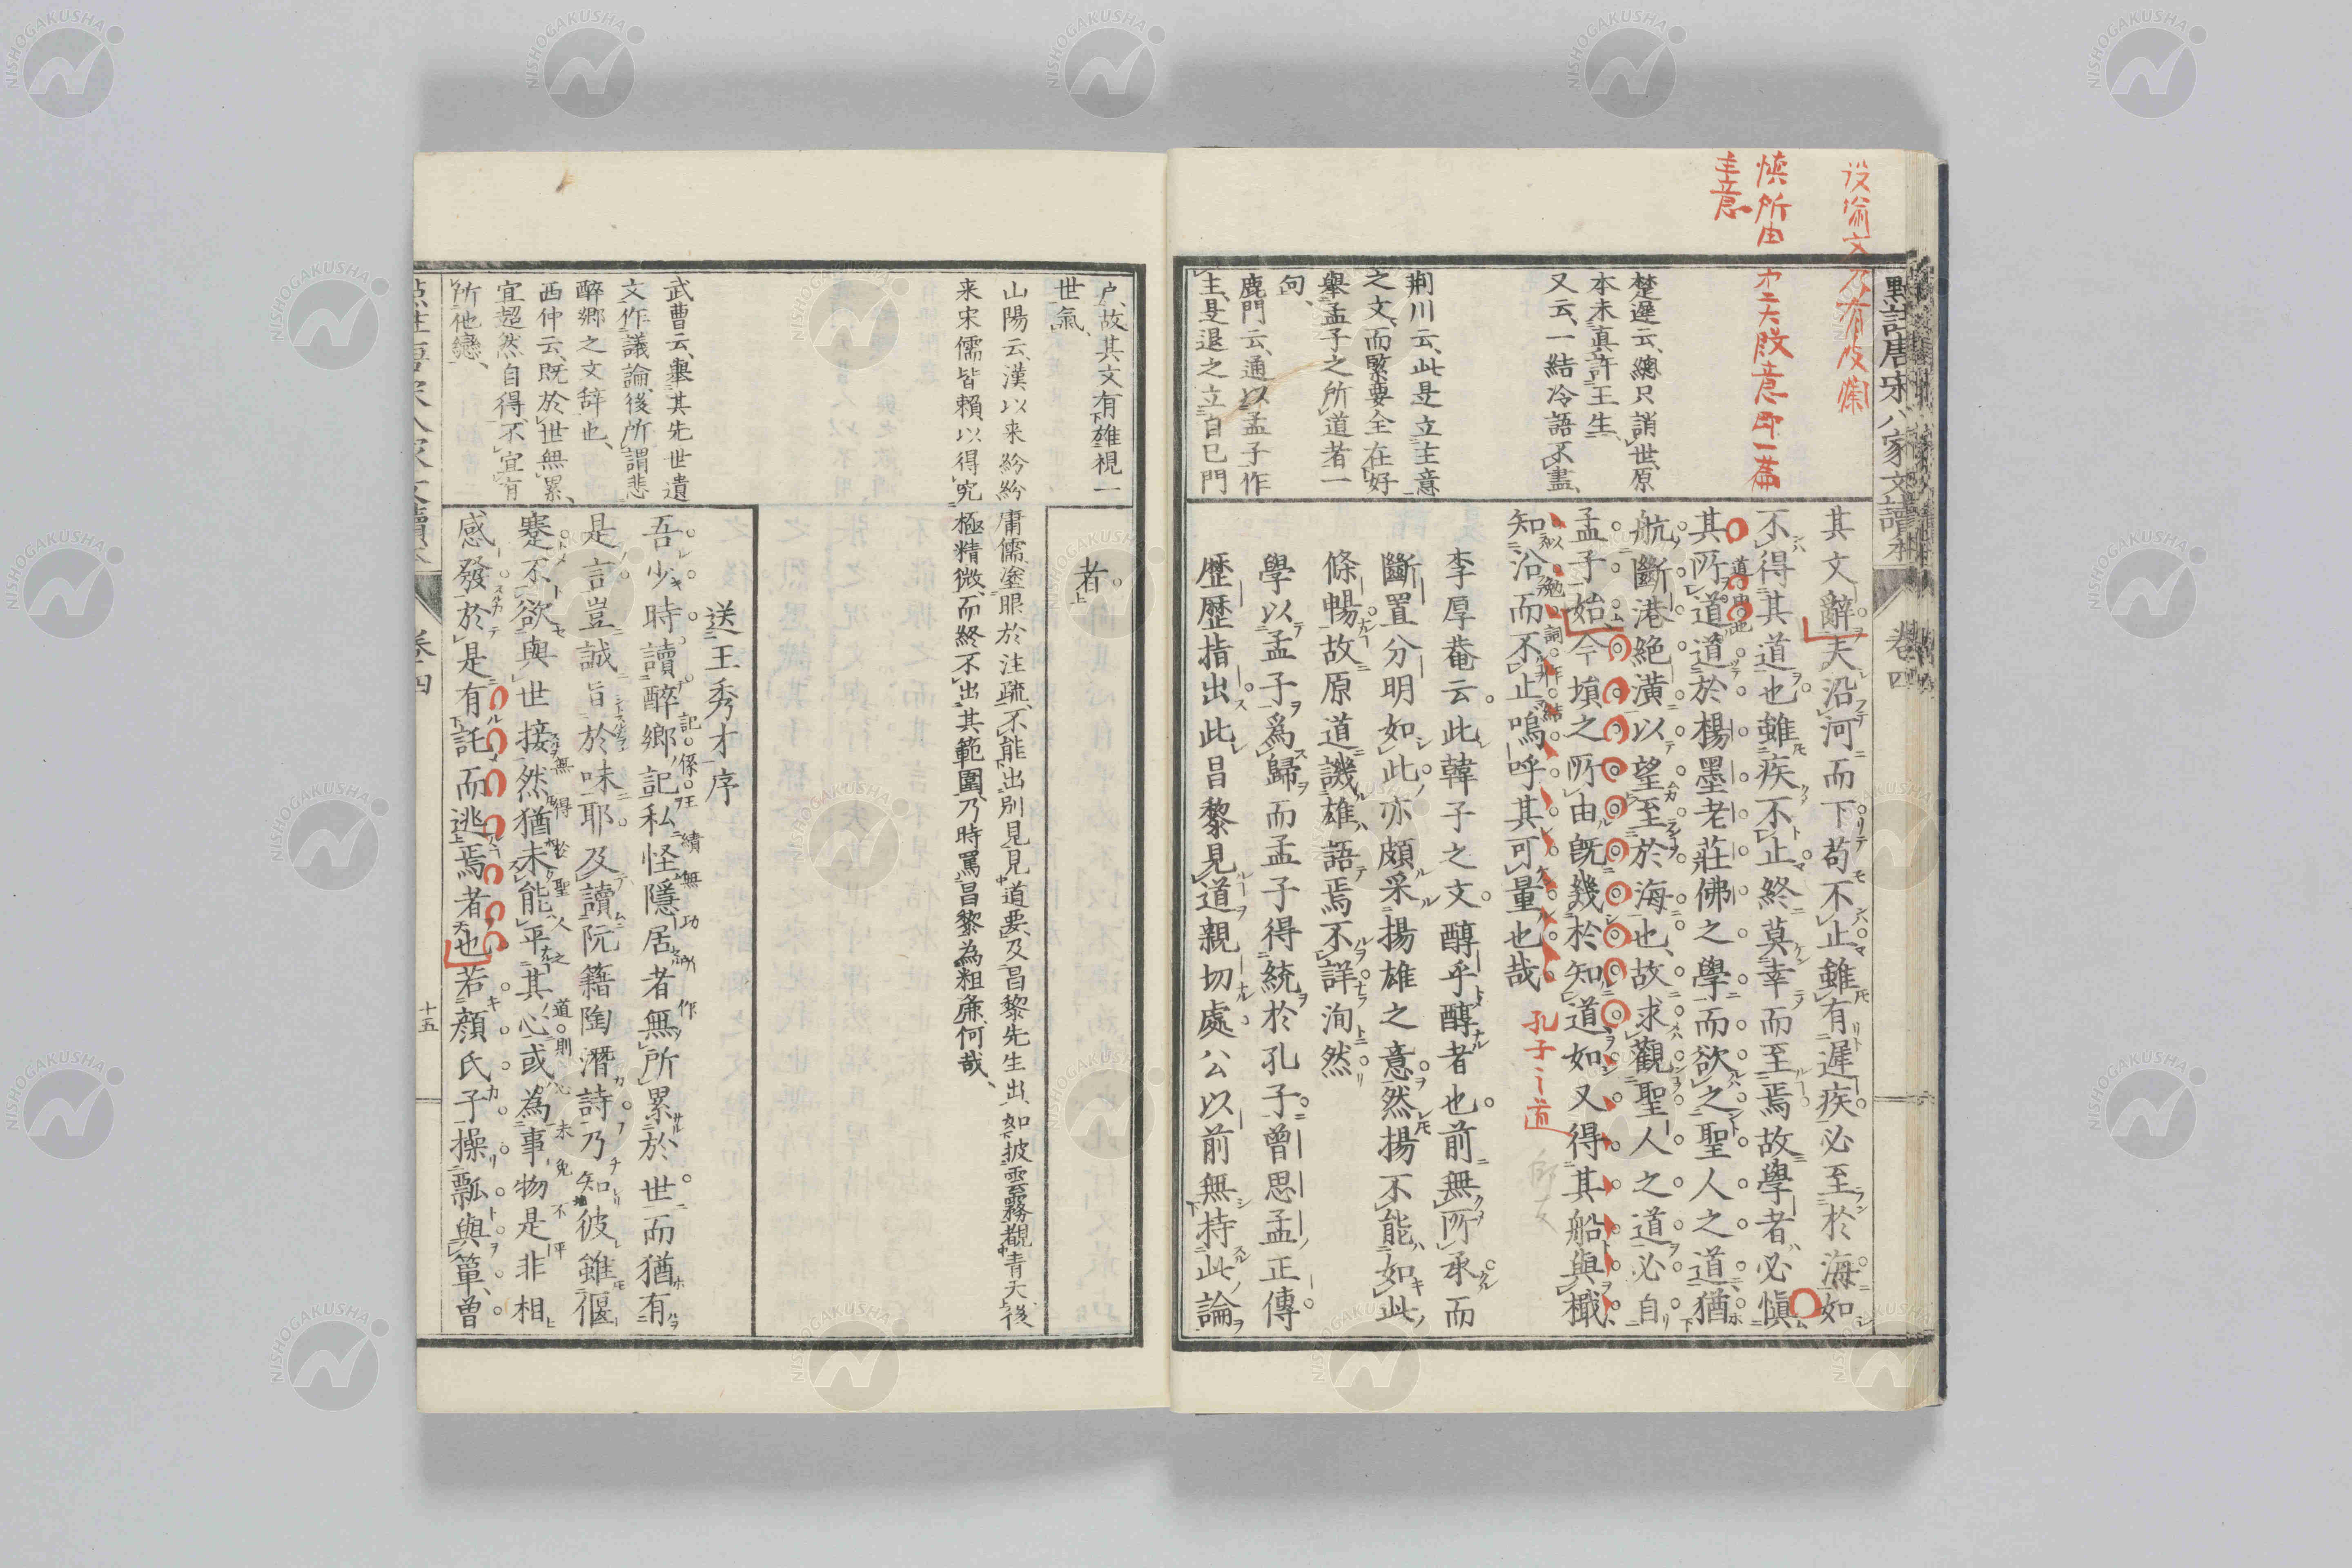 點註唐宋八家文讀本
卷四
孔子之道
慎所由
主意
其文辭夫沿河而下苟不止雖有遲疾必至於海如
不得其道也雖疾不止終莫幸而至焉故學者必慎
其所道道於楊墨老莊佛之學而欲之聖人之道猶
航斷港絕潢以望至於海也故求觀聖人之道必自
孟子始今塤之所由既幾於知道如又得其船與檝
知沿而不止嗚呼其可量也哉
李厚菴云此韓子之文醇乎醇者也前無所承而
斷置分明如此亦頗采揚雄之意然揚不能如此
條暢故原道譏雄語焉不詳洵然
學以孟子為歸而孟子得統於孔子曾思孟正傳
歷歷指出此昌黎見道親切處公以前無持此論
楚遲云總只謂世原
本未真許王生
又云一結冷語不盡
荊川云此是立主意
之文而緊要全在好
舉孟子之所道者一
句
鹿門云通以孟子作
主是退之立自己門
戶故其文有雄視一
世氣
者
山陽云漢以來紛紛庸儒塗眼於注疏不能出別見見道要及昌黎先生出如披雲霧覩青天後
來宋儒皆賴以得究極精微而終不出其範圍乃時罵昌黎為粗廉何哉
送王秀才序
吾少時讀醉鄉記私怪隱居者無所累於世而猶有
是言豈誠旨於味耶及讀阮籍陶潛詩乃知彼雖偃
蹇不欲與世接然猶未能平其心或為事物是非相
感發於是有託而逃焉者也若顏氏子操瓢與簞曾
記係王績無功所作
無得於聖人之道則心未免不平
武曹云舉其先世遺
文作議論後所謂悲
醉鄉之文辭也
西仲云既於世無累
宜超然自得不宜有
所他戀
卷四
十五